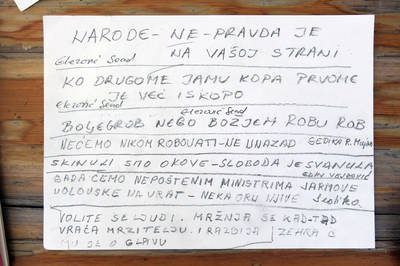 NARODE - NE - PRAVDA JE
NA VAŠOJ STRANI
Elezović Senad
KO DRUGOME JAMU KOPA PRVOME
JE VEĆ ISKOPO
Elezović Senad
Elezović Senad
BOLJE GROB NEGO BOŽJEM ROBU ROB
NEĆEMO NIKOM ROBOVATI - NE UNAZAD SEDIKA R.
SKINULI SMO OKOVE - SLOBODA JE SVANULA
SADA ĆEMO NEPOŠTENIM MINISTRIMA JARMOVE
VOLOVSKE NA VRAT - NEKA ORU NJIVE
VOLITE SE LJUDI. MRŽNJA SE KAD-TAD
VRAĆA MRZITELJU. I RAZBIJA ZEHRA Č
MU SE O GLAVU